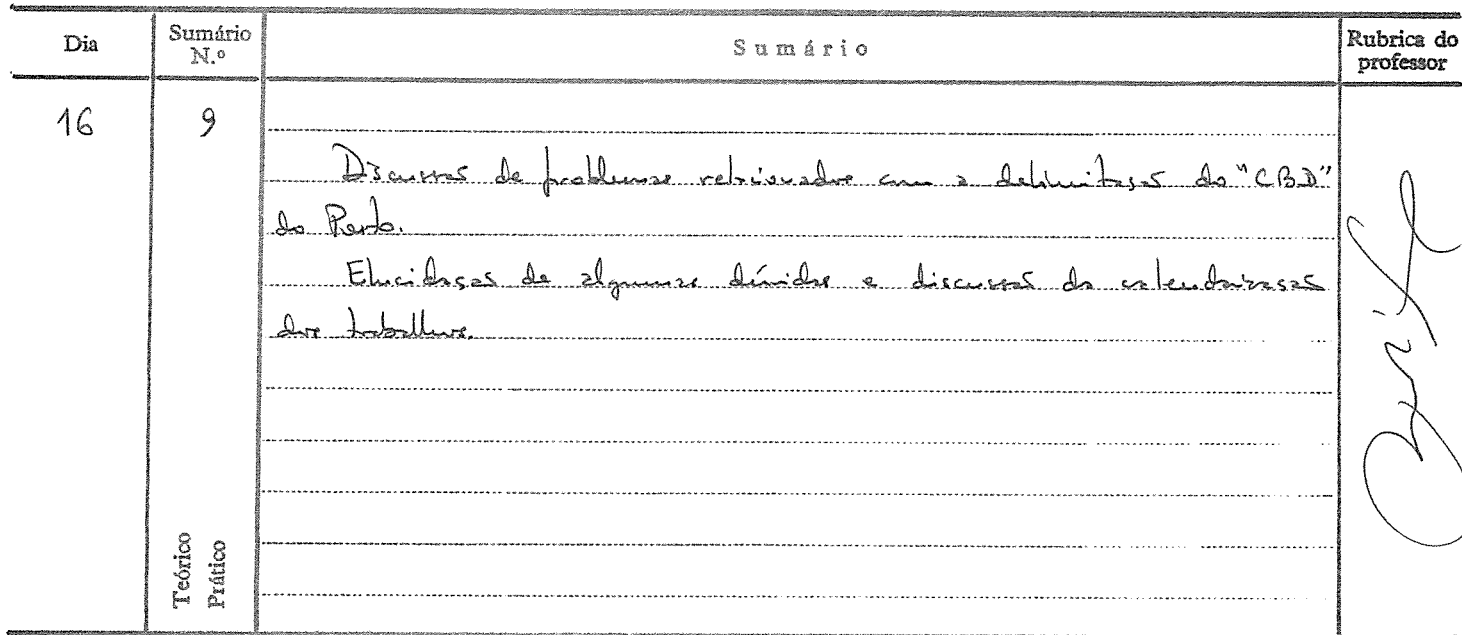 Dia
Sumário N.º
Sumário
Rubrica do professor
16
9
Discussão de problemas relacionados com a delimitação do "CBD"
do Porto.
Elucidação de algumas dúvidas e discussão da calendarização
dos trabalhos.
Teórico
Prático